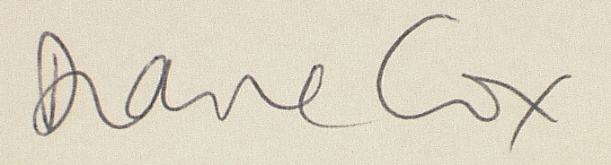 Diane Cox